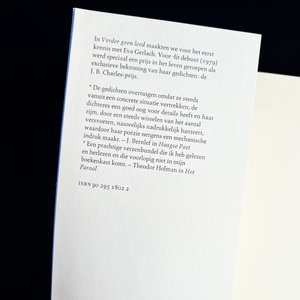 In Verder geen leed maakten we voor het eerst
kennis met Eva Gerlach. Voor dit debuut (1979)
werd speciaal een prijs in het leven geroepen als
exclusieve bekroning van haar gedichten: de
J. B. Charles-prijs.
* De gedichten overtuigen omdat ze steeds
vanuit een concrete situatie vertrekken, de
dichteres een goed oog voor details heeft en haar
rijm, door een steeds wisselen van het aantal
versvoeten, nauwelijks nadrukkelijk hanteert,
waardoor haar poëzie nergens een mechanische
indruk maakt. – J. Bernlef in Haagse Post
* Een prachtige verzenbundel die ik heb gelezen
en herlezen en die voorlopig niet in mijn
boekenkast komt. – Theodor Holman in Het
Parool
ISBN 90 295 1802 2